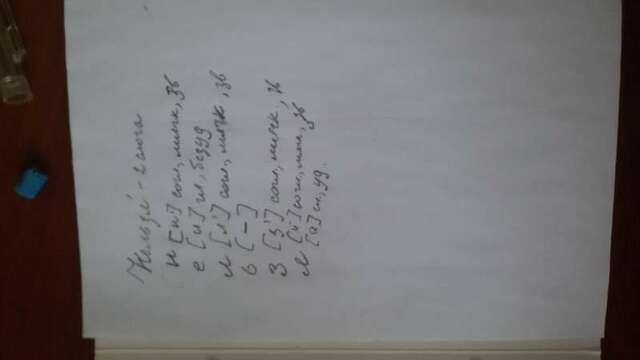 Нельзя́ - 2 слога
н [н'] согл, мягк, зв
е [и] гл, безуд
л [л'] согл, мягк, зв
ь [-]
з [з'] согл, мягк, зв
л [л'] согл, мяг, зв
[а] гл, уд.